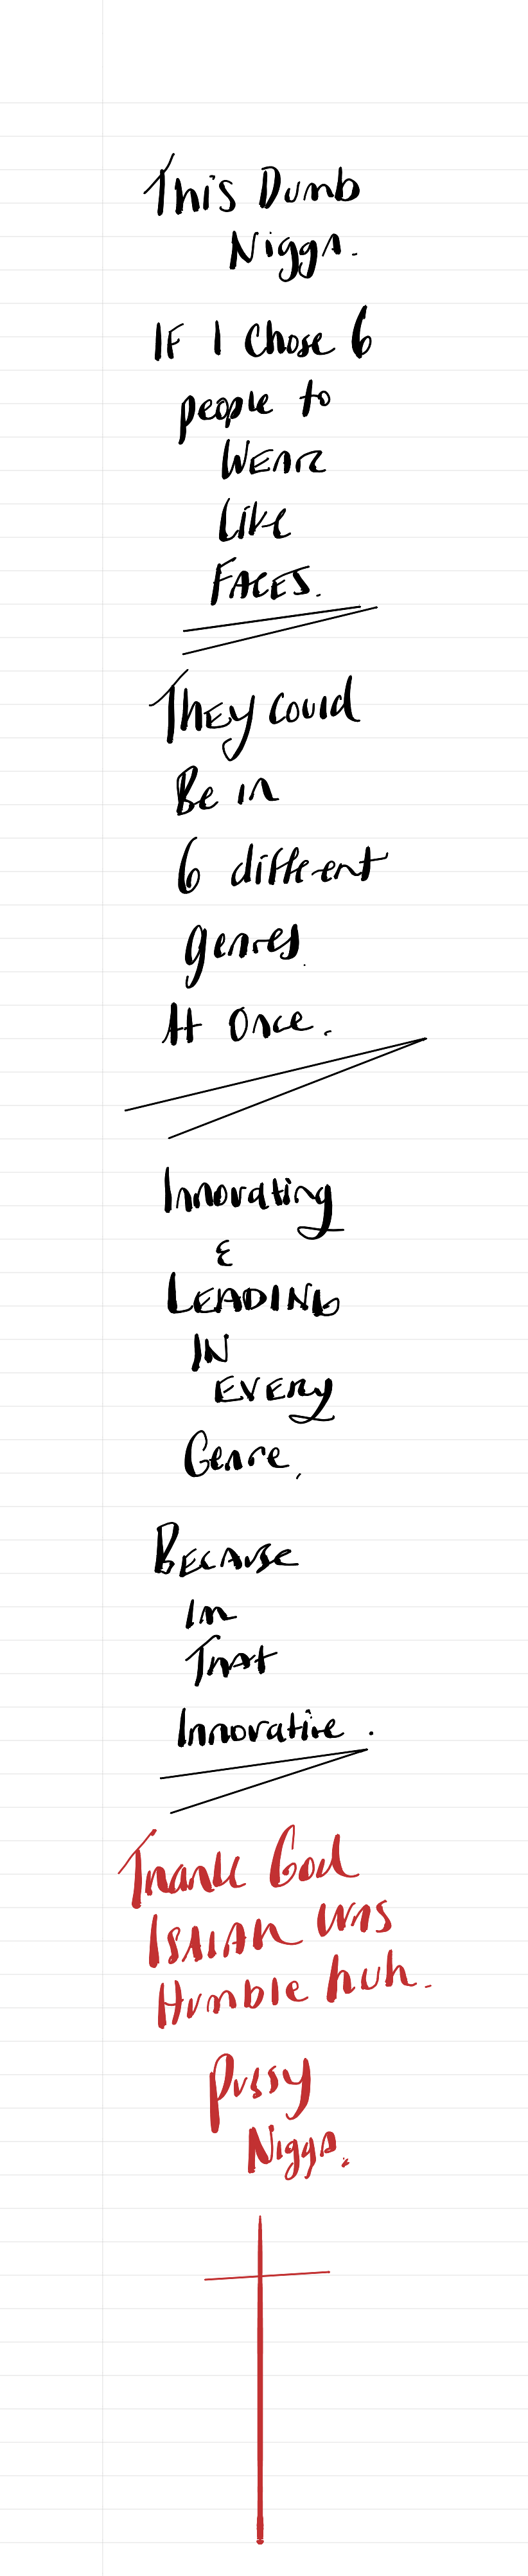 This Dumb
Nigga.
IF I Chose 6
people to
WEAR
Like
FACES.
They could
Be in
6 different
genres.
At Once.
Innovating
&
LEADING
IN
EVERY
Genre.
BECAUSE
Im
That
Innovative.
Thank God
ISAIAH WAS
Humble huh.
Pussy
Nigga.